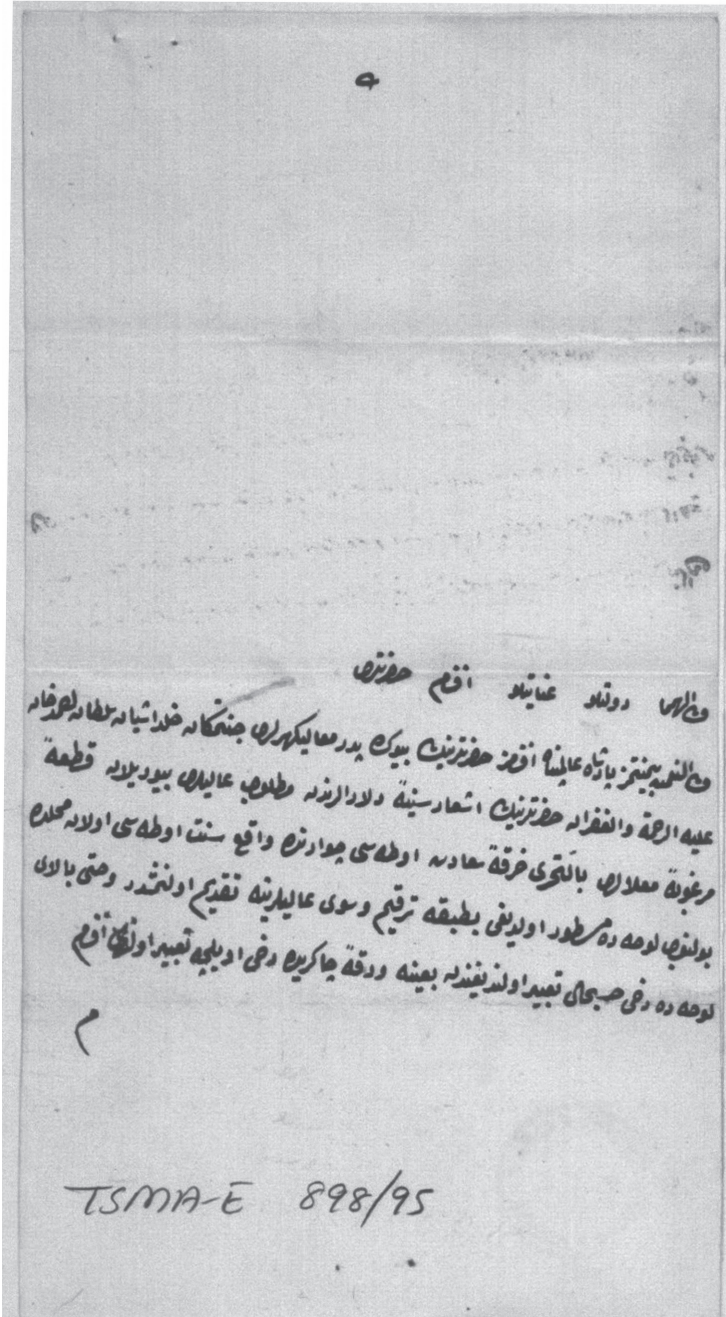 ه
دولتلو عنايتلو افندم حضرتلری
ولی النعمت بیمنتمز پادشاه عالمپناه افندمز حضرتلرینك بیوك پدر معالیکهرلری جنتمکان خلد آشیان سلطان احمد خان
علیه الرحمة والغفران حضرتلرینك اشعار سنیهٔ دلارالرندن مطلوب عالیلری بیوریلان قطعهٔ
مرغوبهٔ معلالری بالتحری خرقهٔ سعادت اوطه سی جوارنده واقع سنت اوطه سی اولان محلده
بولنوب لوحه ده مسطور اولدیغی بطبقه ترقیم وسوی عالیلرینه تقدیم اولنمشدر وحتی بالای
لوحه ده دخی حسبحالی تعبیر اولندیغندن بعینه ورقهٔ چاکریده دخی اویلجه تعبیر افندم
م
TSMA-E 898/95